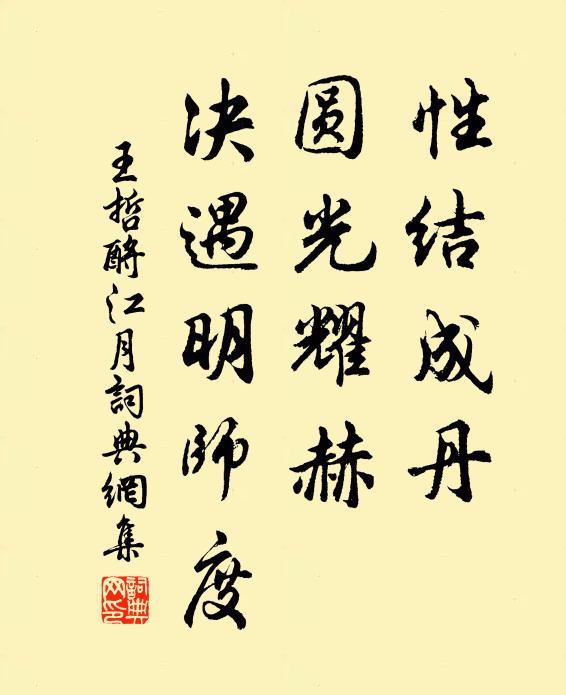 性结成丹
圆光耀赫
决遇明师度
王哲酹江月词典網集
詞典网印